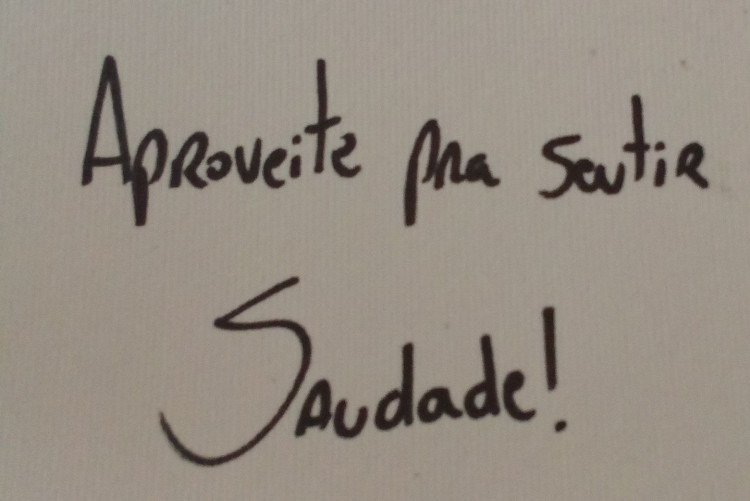 Aproveite pra sentir
Saudade!